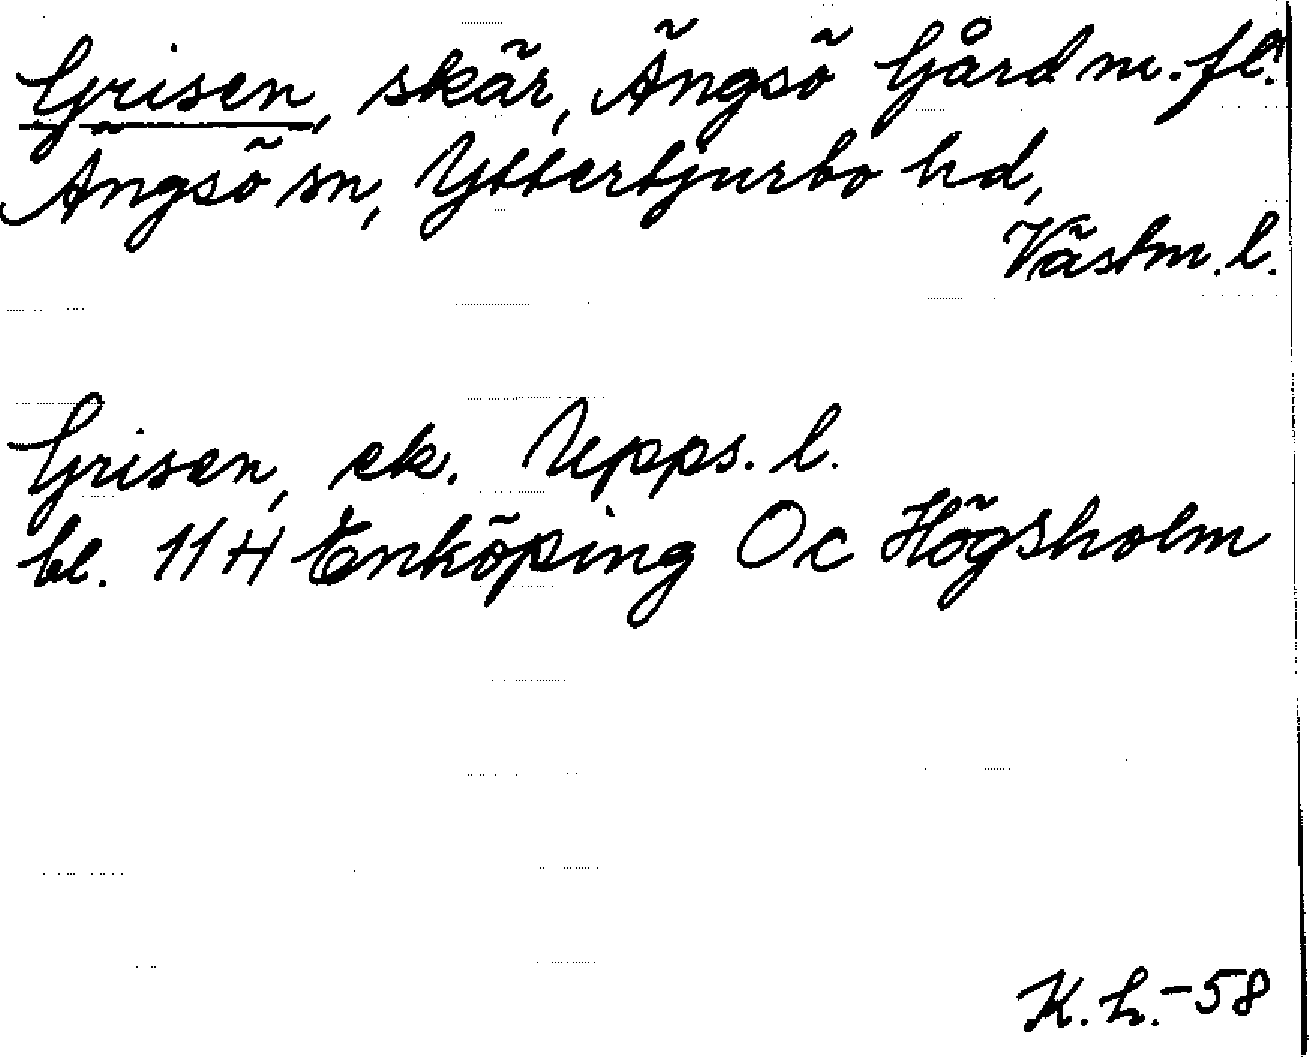 Grisen, skär, Ängsö Gård m.fl.
Ängsö sn, Ytterbjurbo hd,
Västm. l.
Grisen, ek. Upps. l.
bl. 11 H Enköping Oc Högsholm
K. h. -58